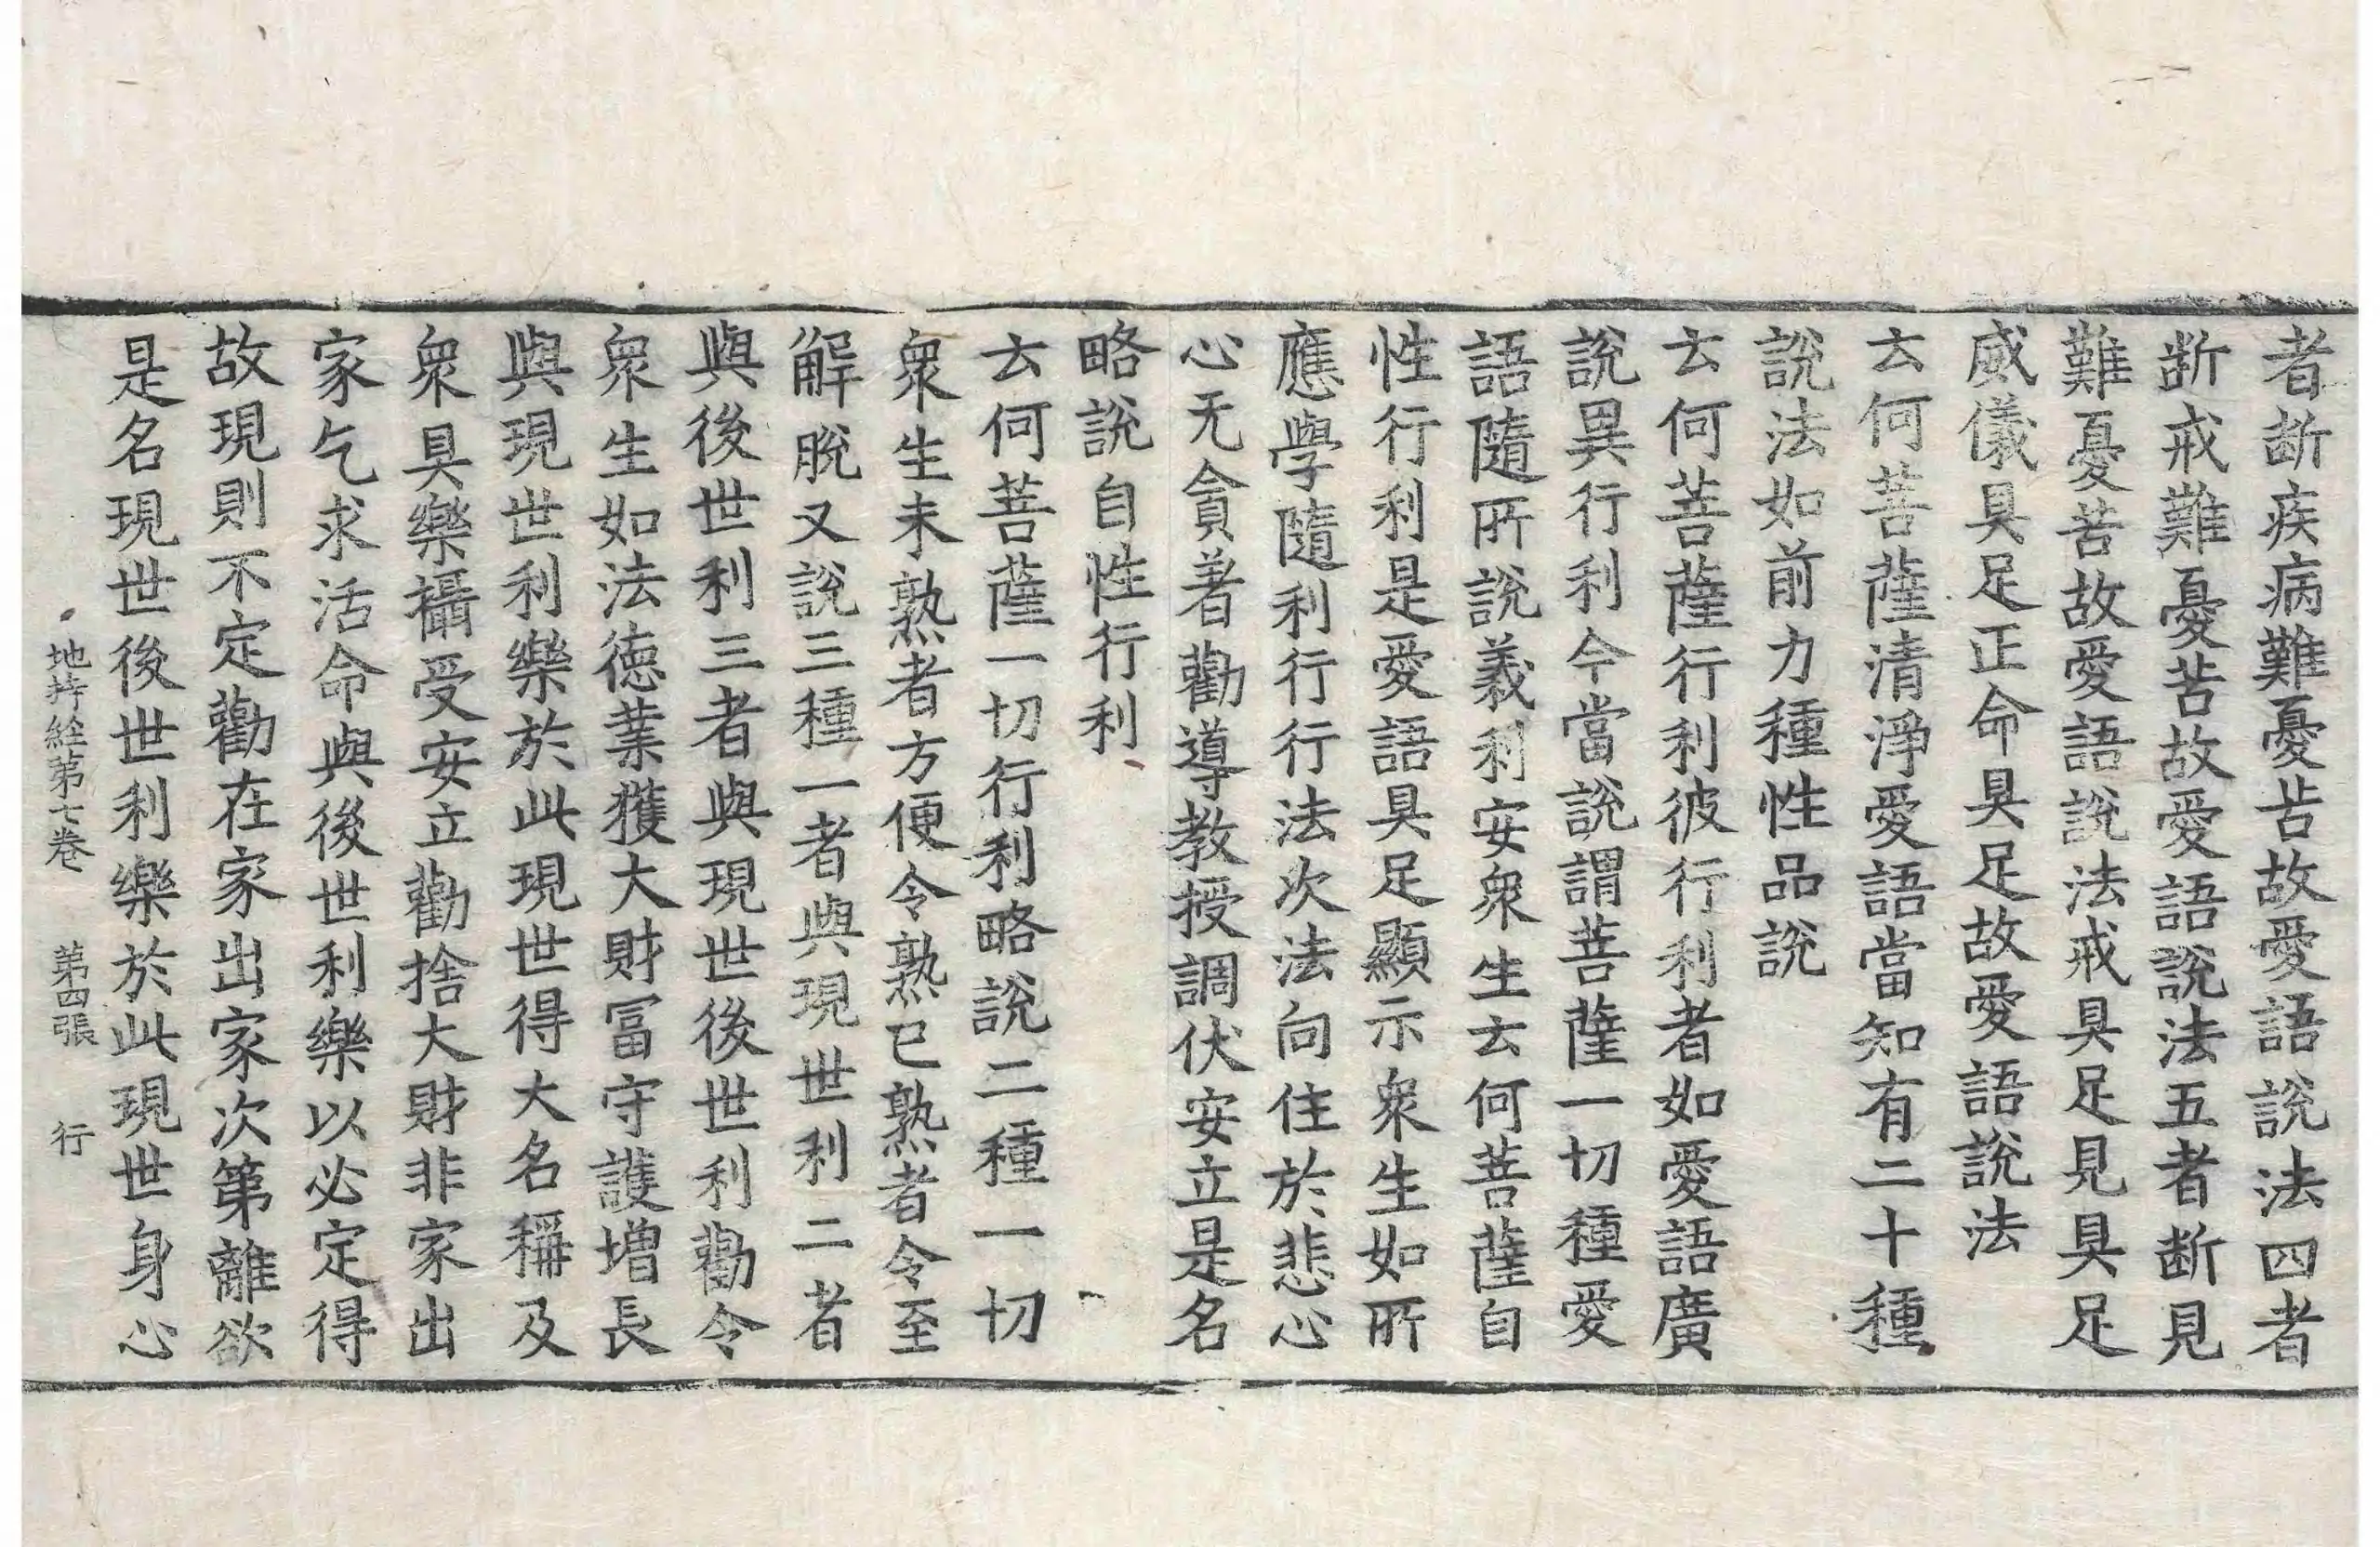 者断疾病難憂苦故愛語說法四者
断戒難憂苦故愛語說法五者断見
難憂苦故愛語說法戒具足見具足
威儀具足正命具足故愛語說法
云何菩薩清淨愛語當知有二十種
說法如前力種性品說
云何菩薩行利彼行利者如愛語廣
說異行利今當說謂菩薩一切種愛
語隨所說義利安衆生云何菩薩自
性行利是愛語具足顯示衆生如所
應學隨利行行法次法向住於悲心
心无貪著勸導教授調伏安立是名
略說自性行利
云何菩薩一切行利略說二種一切
衆生未熟者方便令熟已熟者令至
解脫又說三種一者與現世利二者
與後世利三者與現世後世利勸令
衆生如法德業獲大財冨守護增長
與現世利樂於此現世得大名稱及
衆具樂攝受安立勸捨大財非家出
家乞求活命與後世利樂以必定得
故現則不定勸在家出家次第離欲
是名現世後世利樂於此現世身心
地持經第七卷　第四張　行